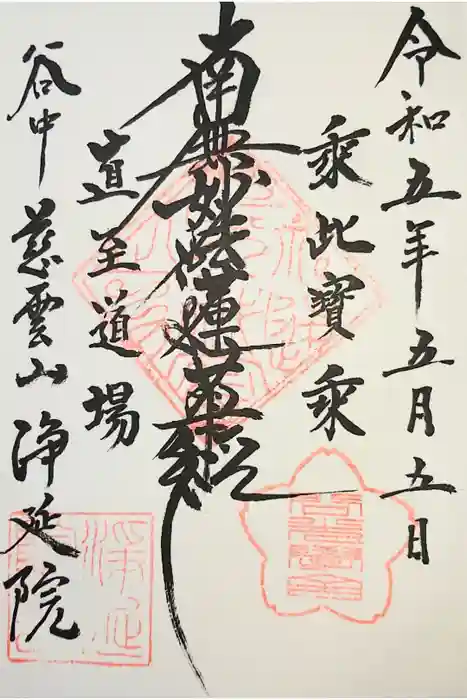 令和五年五月五日
乗此寶乗
南無妙法蓮華経
直至道場
谷中慈雲山浄延院